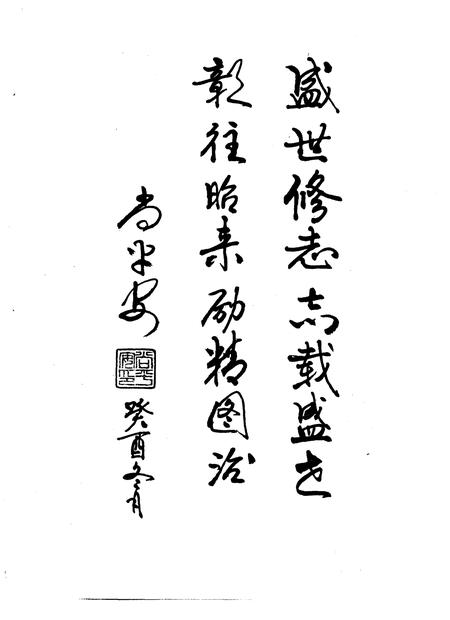 盛世修志志载盛世
彰往昭来励精图治
尚平安
癸酉冬月